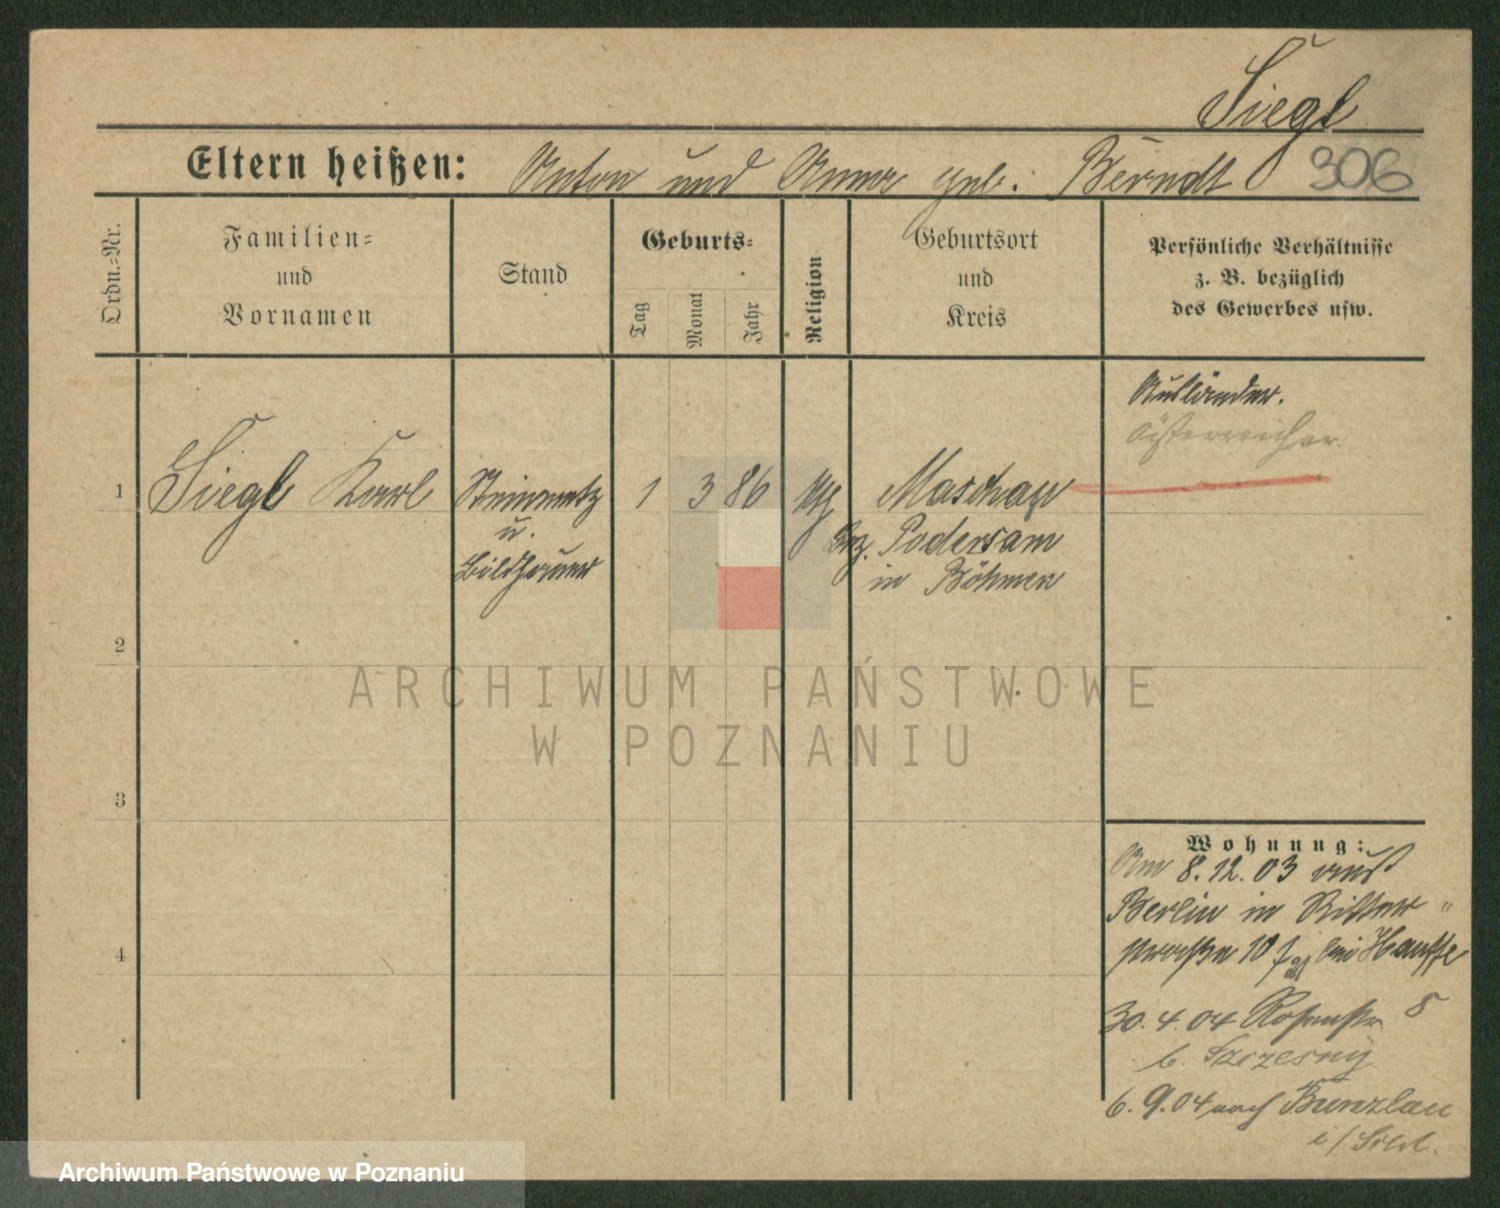 Siegl
Eltern heißen: Anton und Anna geb. Berndt 306
Ordn.-Nr.
Familien-
und
Vornamen
Stand
Geburts-
Tag
Monat
Jahr
Religion
Geburtsort
und
Kreis
Persönliche Verhältnisse
z. B. bezüglich
des Gewerbes usw.
Ausländer.
Österreicher.
1 Siegl Karl Steinmetz 1 3 86 ktg Maschau
u. Bez. Podersam
Bildhauer in Böhmen
2
ARCHIWUM PAŃSTWOWE
W POZNANIU
3
Wohnung:
Am 8.12.03 aus
Berlin in Ritter-
straße 10 bei Hauffe
4
30.4.04 Rosenstr. 8
b. Szczesny
6.9.04 nach Bunzlau
i/Schl.
Archiwum Państwowe w Poznaniu